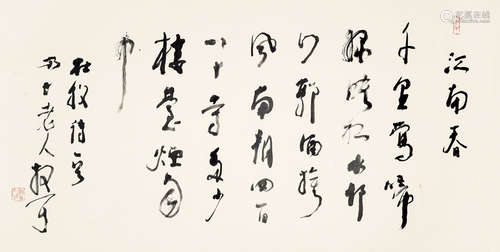 江南春
千里莺啼
绿映红水邨
山郭酒旗
风南朝四百
八十寺多少
楼台烟雨
中
杜牧诗
老人